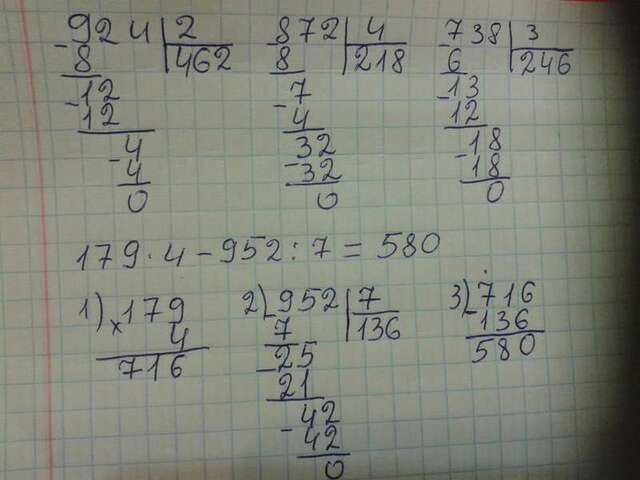 924 | 2    872 | 4    738 | 3
-8 | 462    -8 | 218    -6 | 246
-12    -7    -13
12    4    12
-4    -32    -18
4    32    18
0    0    0
179 · 4 - 952 : 7 = 580
1) ×179    2) -952 | 7    3) -716
4    7 | 136    136
716    -25    580
21
-42
42
0